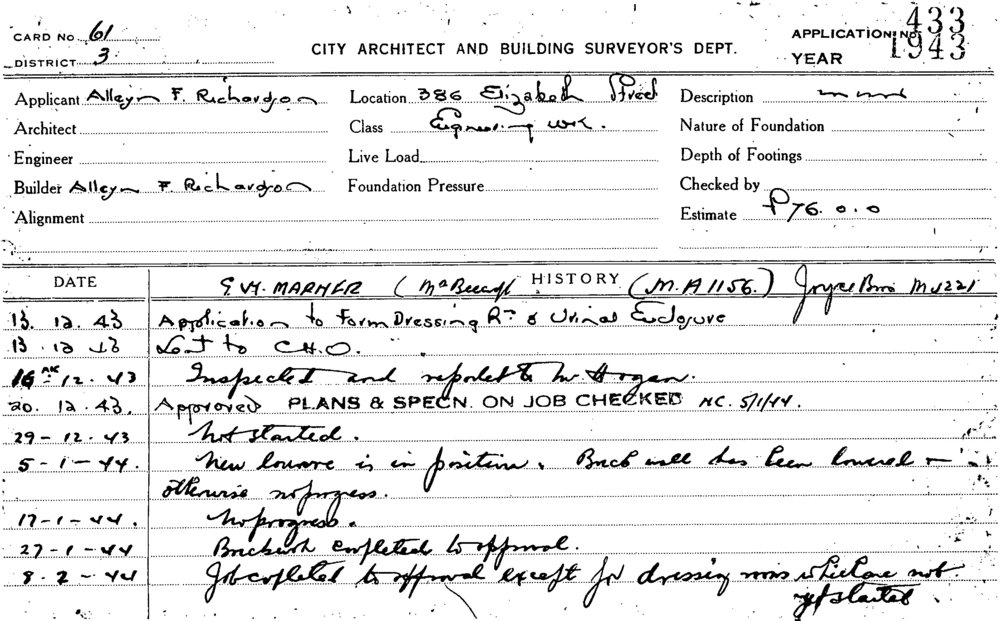 CARD No 61
DISTRICT 3
CITY ARCHITECT AND BUILDING SURVEYOR'S DEPT.
APPLICATION No. 433
YEAR 1943
Applicant Alleyn F. Richardson
Location 386 Elizabeth Street
Description
Architect
Class Engineering Wk.
Nature of Foundation
Engineer
Live Load
Depth of Footings
Builder Alleyn F. Richardson
Foundation Pressure
Checked by
Alignment
Estimate £76.0.0
DATE
HISTORY
G. H. MARHER ( (M.A 1156.) Joyce Bros MU 1221
13. 12. 43 Application to Form Dressing Rm & Urinal Enclosure
13. 12 43 Sent to C.H.O.
16 12. 43 Inspected and reported to Mr Hogan.
20. 12. 43. Approved PLANS & SPECN. ON JOB CHECKED 5/1/44.
29-12-43 Not started.
5-1-44. New louvre is in position. Brick wall has been lowered
otherwise no progress.
17-1-44. No progress.
27-1-44 Brickwork completed to approval.
8-2-44 Job completed to approval except for dressing rooms which are not
yet started.